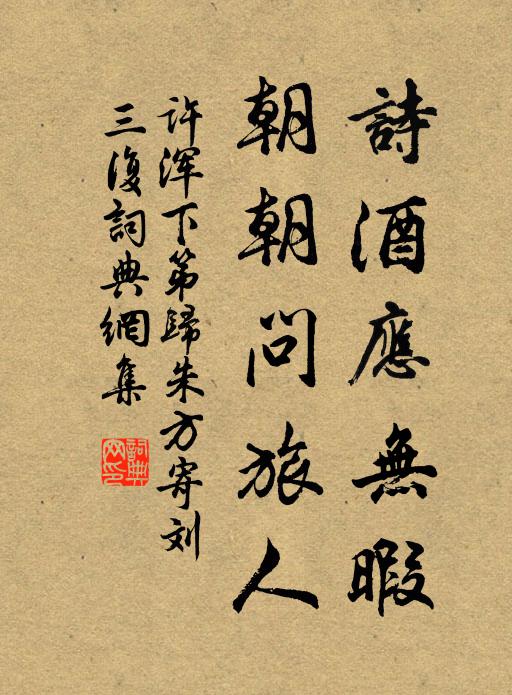 詩酒應無暇
朝朝問旅人
许浑下第歸朱方寄刘
三復詞典網集
詞典
网印